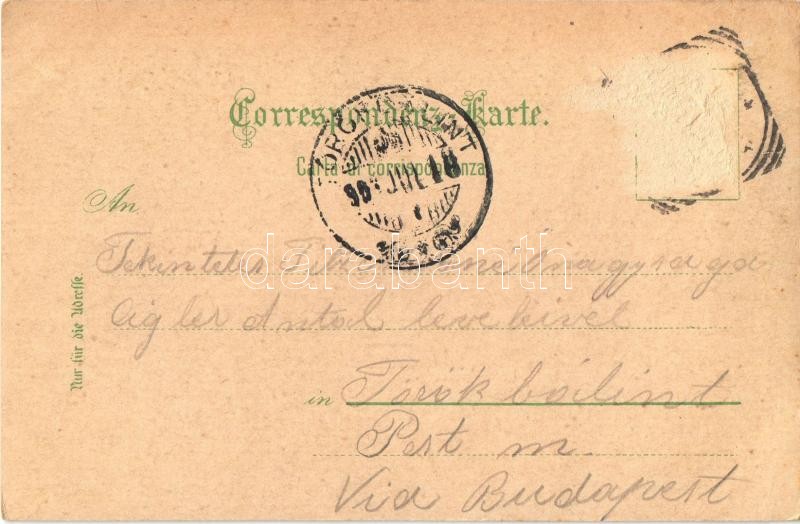 Correspondenz-Karte.
Carta di corrispondenza.
TÖRÖKBÁLINT
901 JUL 18
An
Tekintetes Őnagysága
Cigler Antal leveleivel
in Törökbálint
Pest m.
Via Budapest
Nur für die Adresse.
darabanth